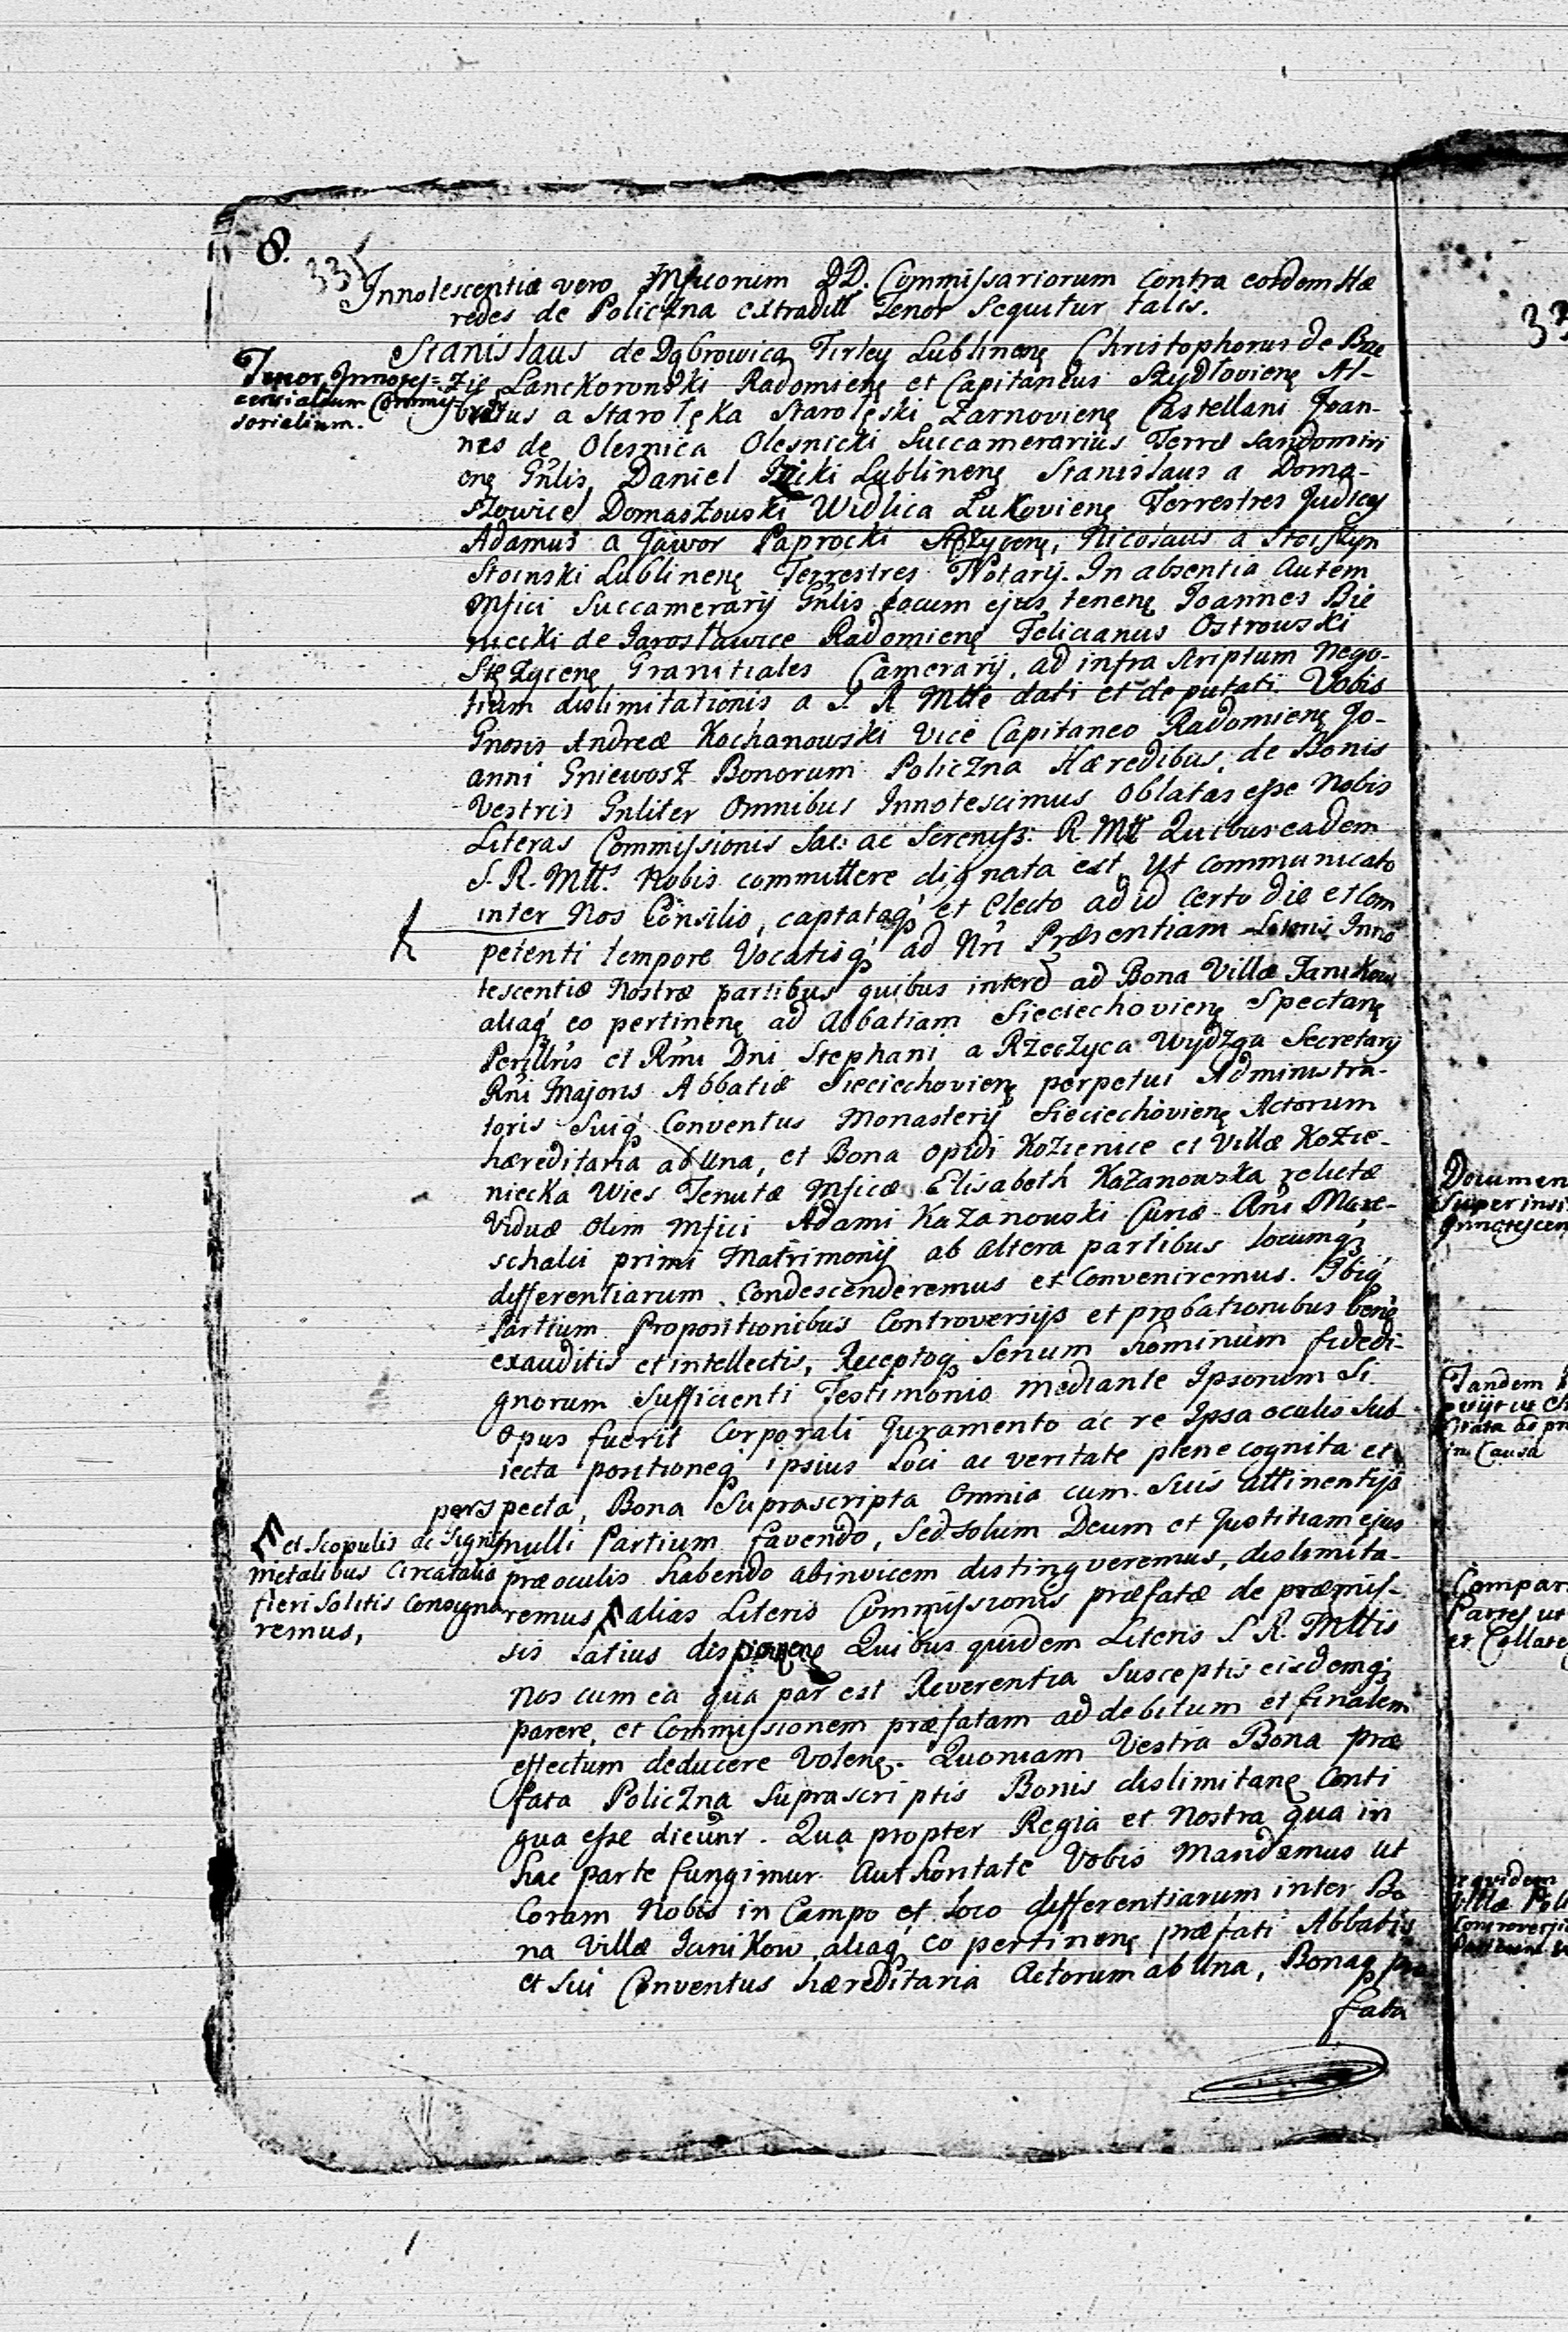 8.
335
Innotescentiæ vero Mficorum DD. Commissariorum contra eosdem Hæ
redes de Policzna extradittæ Tenor sequitur talis.
Tenor Innotes=
cencialium Commis
sorialium.
Stanislaus de Dąbrowica Firley Lublinenę Christophorus de Brze
zie Lanckoronski Radomienę et Capitaneus Szydlovienę Al-
bertus a Starołęka Starolęski Zarnovienę Castellani Joan-
nes de Olesnica Olesnicki Succamerarius Terræ Sandomiri
enę Gnlis, Daniel Lublinenę Stanislaus a Doma-
szowice Domaszouski Widlica Lukovienę Terrestres Judices
Adamus a Jawor Paprocki Stęzycenę, Nicolaus a Stoiszyn
Stoinski Lublinenę Terrestres Notarij. In absentia autem
Mfici Succamerarij Gnlis locum ejus tenenę Joannes Bie
niecki de Jarosławice Radomienę Felicianus Ostrowski
Stęzycenę Granitiales Camerarij, ad infra scriptum Nego-
tium dislimitationis a S. R. Mtte dati et deputati. Vobis
Gnosis Andreæ Kochanowski Vice Capitaneo Radomienę Jo-
anni Gniewosz Bonorum Policzna Hæredibus, de Bonis
Vestris Gnliter Omnibus Innotescimus oblatas esse Nobis
Literas Commissionis Sac: ac Sereniss: R. Mtt Quibus eadem
S. R. Mtt. Nobis committere dignata est, Ut communicato
inter Nos Consilio, captataq́ et Electo ad id certo die et Com
petenti tempore Vocatisq́ ad Nri Præsentiam Literis Inno
tescentiæ Nostræ partibus quibus interē ad Bona Villæ Janikow
aliaq́ eo pertinenę ad Abbatiam Sieciechovienę Spectanę
Perillris et Rmi Dni Stephani a Rzeczyca Wydzga Secretarij
Rni Majoris Abbatiæ Sieciechovienę perpetui Administra-
toris Suiq́ Conventus Monasterij Sieciechovienę Actorum
hæreditaria ab Una, et Bona opidi Kozienice et Villæ Kozie-
niecka Wies Tenutæ Mficæ Elisabeth Kazanowska relictæ
Viduæ olim Mfici Adami Kazanouski Curiæ Rni Mare-
schalci primi Matrimonij ab altera partibus locumq́
differentiarum Condescenderemus et Conveniremus. Ibiq́
Partium Propositionibus Controversijs et probationibus bene
exauditis et intellectis, Receptoq́ Senum hominum fidedi-
gnorum Sufficienti Testimonio mediante Ipsorum Si
Opus fuerit Corporali Juramento ac re Ipsa oculis Sub
iecta positioneq́ ipsius Loci ac veritate plene cognita et
perspecta, Bona Suprascripta Omnia cum Suis attinentijs
nulli Partium favendo, Sed solum Deum et Justitiam ejus
præoculis habendo abinvicem distingveremus, dislimita-
remus alias Literis Commissionis præfatæ de præmis-
sis latius disponenę Quibus quidem Literis S. R. Mttis
Nos cum ea qua par est Reverentia Susceptis eisdemq́
parere, et Commissionem præfatam ad debitum et finalem
effectum deducere Volenę. Quoniam Vestra Bona præ
fata Policzna Suprascriptis Bonis dislimitanę Conti
gua esse dicunr. Qua propter Regia et Nostra qua in
hac parte fungimur Authoritate Vobis Mandamus ut
Coram Nobis in Campo et Loco differentiarum inter Bo
na Villæ Janikow aliaq́ eo pertinenę præfati Abbatis
et Sui Conventus hæreditaria Actorum ab Una, Bonaq́ præ
fata
et Scopulis ac Signis
metalibus circa talia
fieri Solitis Consigna
remus,
Documen
Super insi
Innotescen
Tandem
in Causa
Compar
Partes ut
et Collate